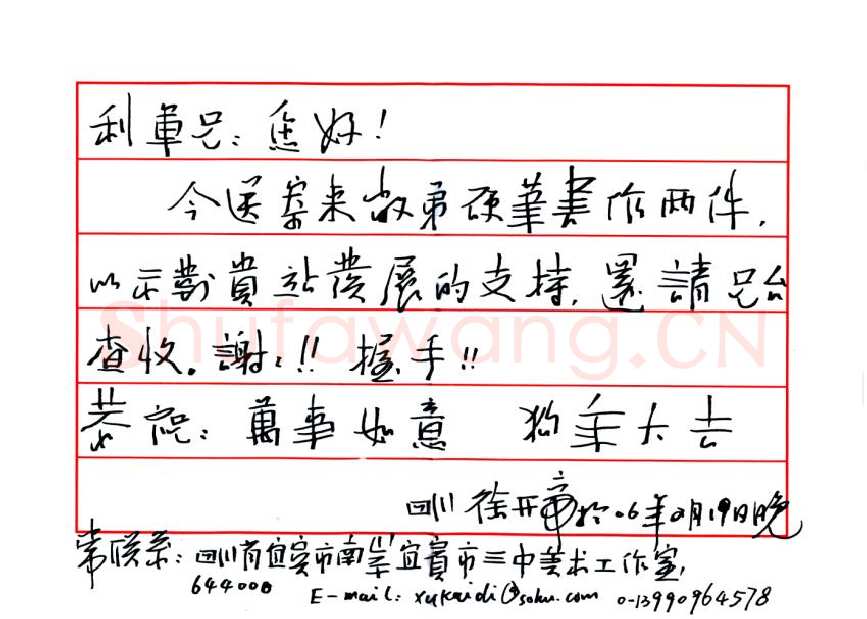 利軍兄：您好！
今送寄来敝弟硬筆書作两件，
以示對貴站發展的支持，還請兄台
查收。謝謝！！握手！！
恭祝：萬事如意 狗年大吉
四川 徐開帝於06年2月19日晚
常联系：四川省宜賓市南岸宜賓市三中美术工作室，
644000 E-mail: xukaidi@sohu.com 0-13990964578
Shufawang.CN